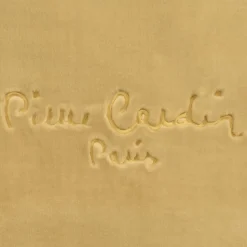 Pierre Cardin
Paris